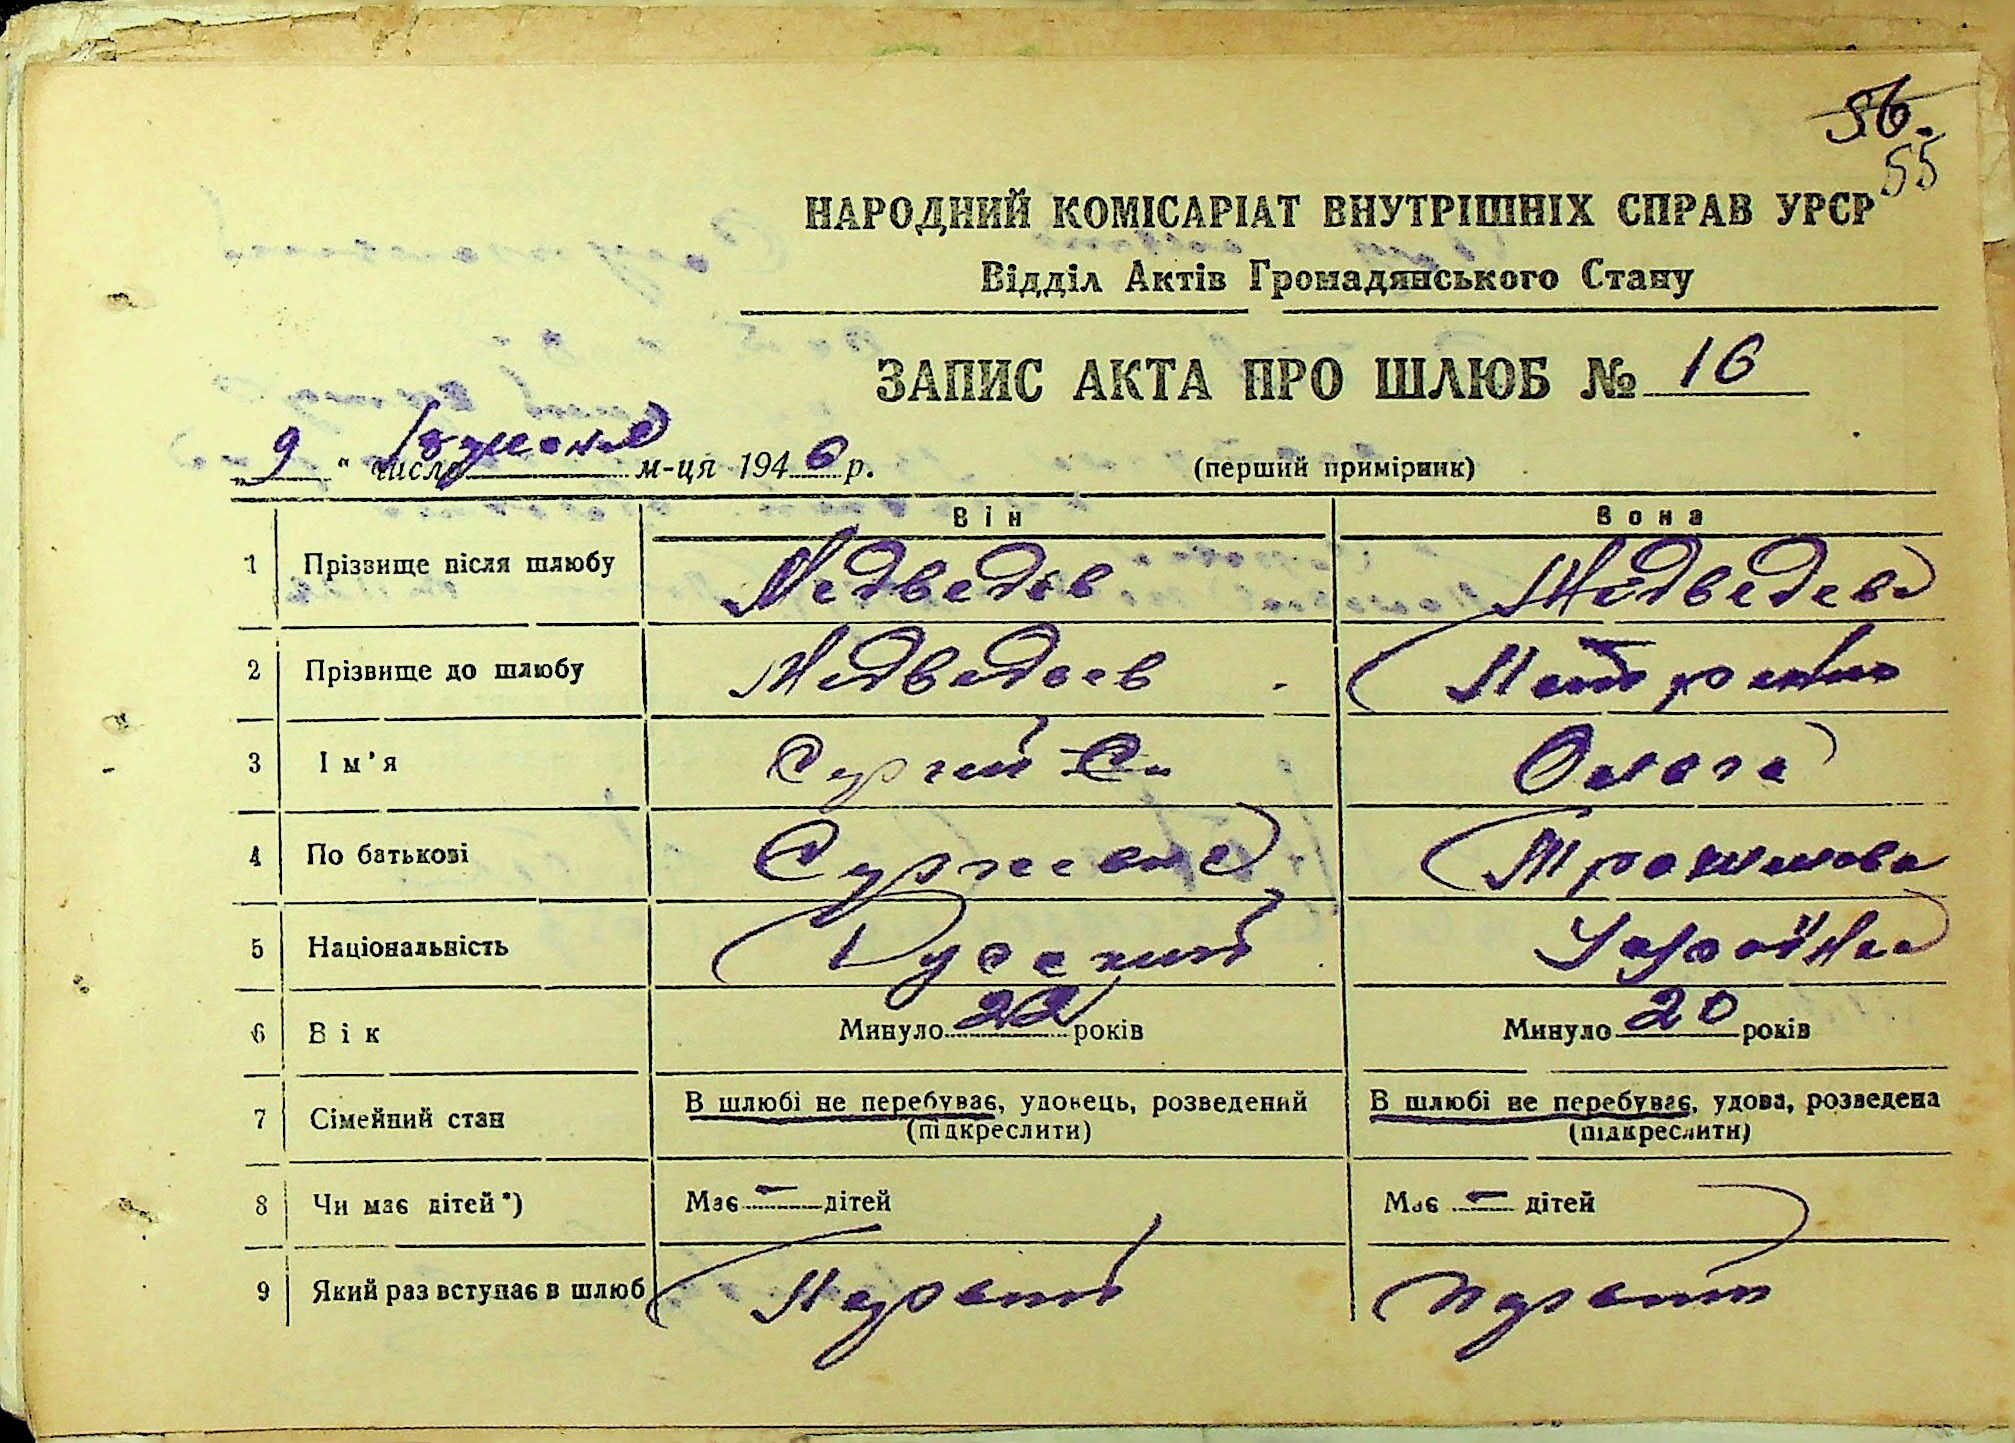 56.
55
НАРОДНИЙ КОМІСАРІАТ ВНУТРІШНІХ СПРАВ УРСР
Відділ Актів Громадянського Стану
ЗАПИС АКТА ПРО ШЛЮБ № 16
„ 9 “ число м-ця 1946 р. (перший примірник)
Він Вона
1 Прізвище після шлюбу Медведєв Медведева
2 Прізвище до шлюбу Медведев
3 Ім'я Сергий Ольга
4 По батькові Сергеевич Трохимовна
5 Національність Русский
6 Вік Минуло 22 років Минуло 20 років
7 Сімейний стан В шлюбі не перебуває, удовець, розведений В шлюбі не перебуває, удова, розведена
(підкреслити) (підкреслити)
8 Чи має дітей*) Має — дітей Має — дітей
9 Який раз вступає в шлюб Первый первый